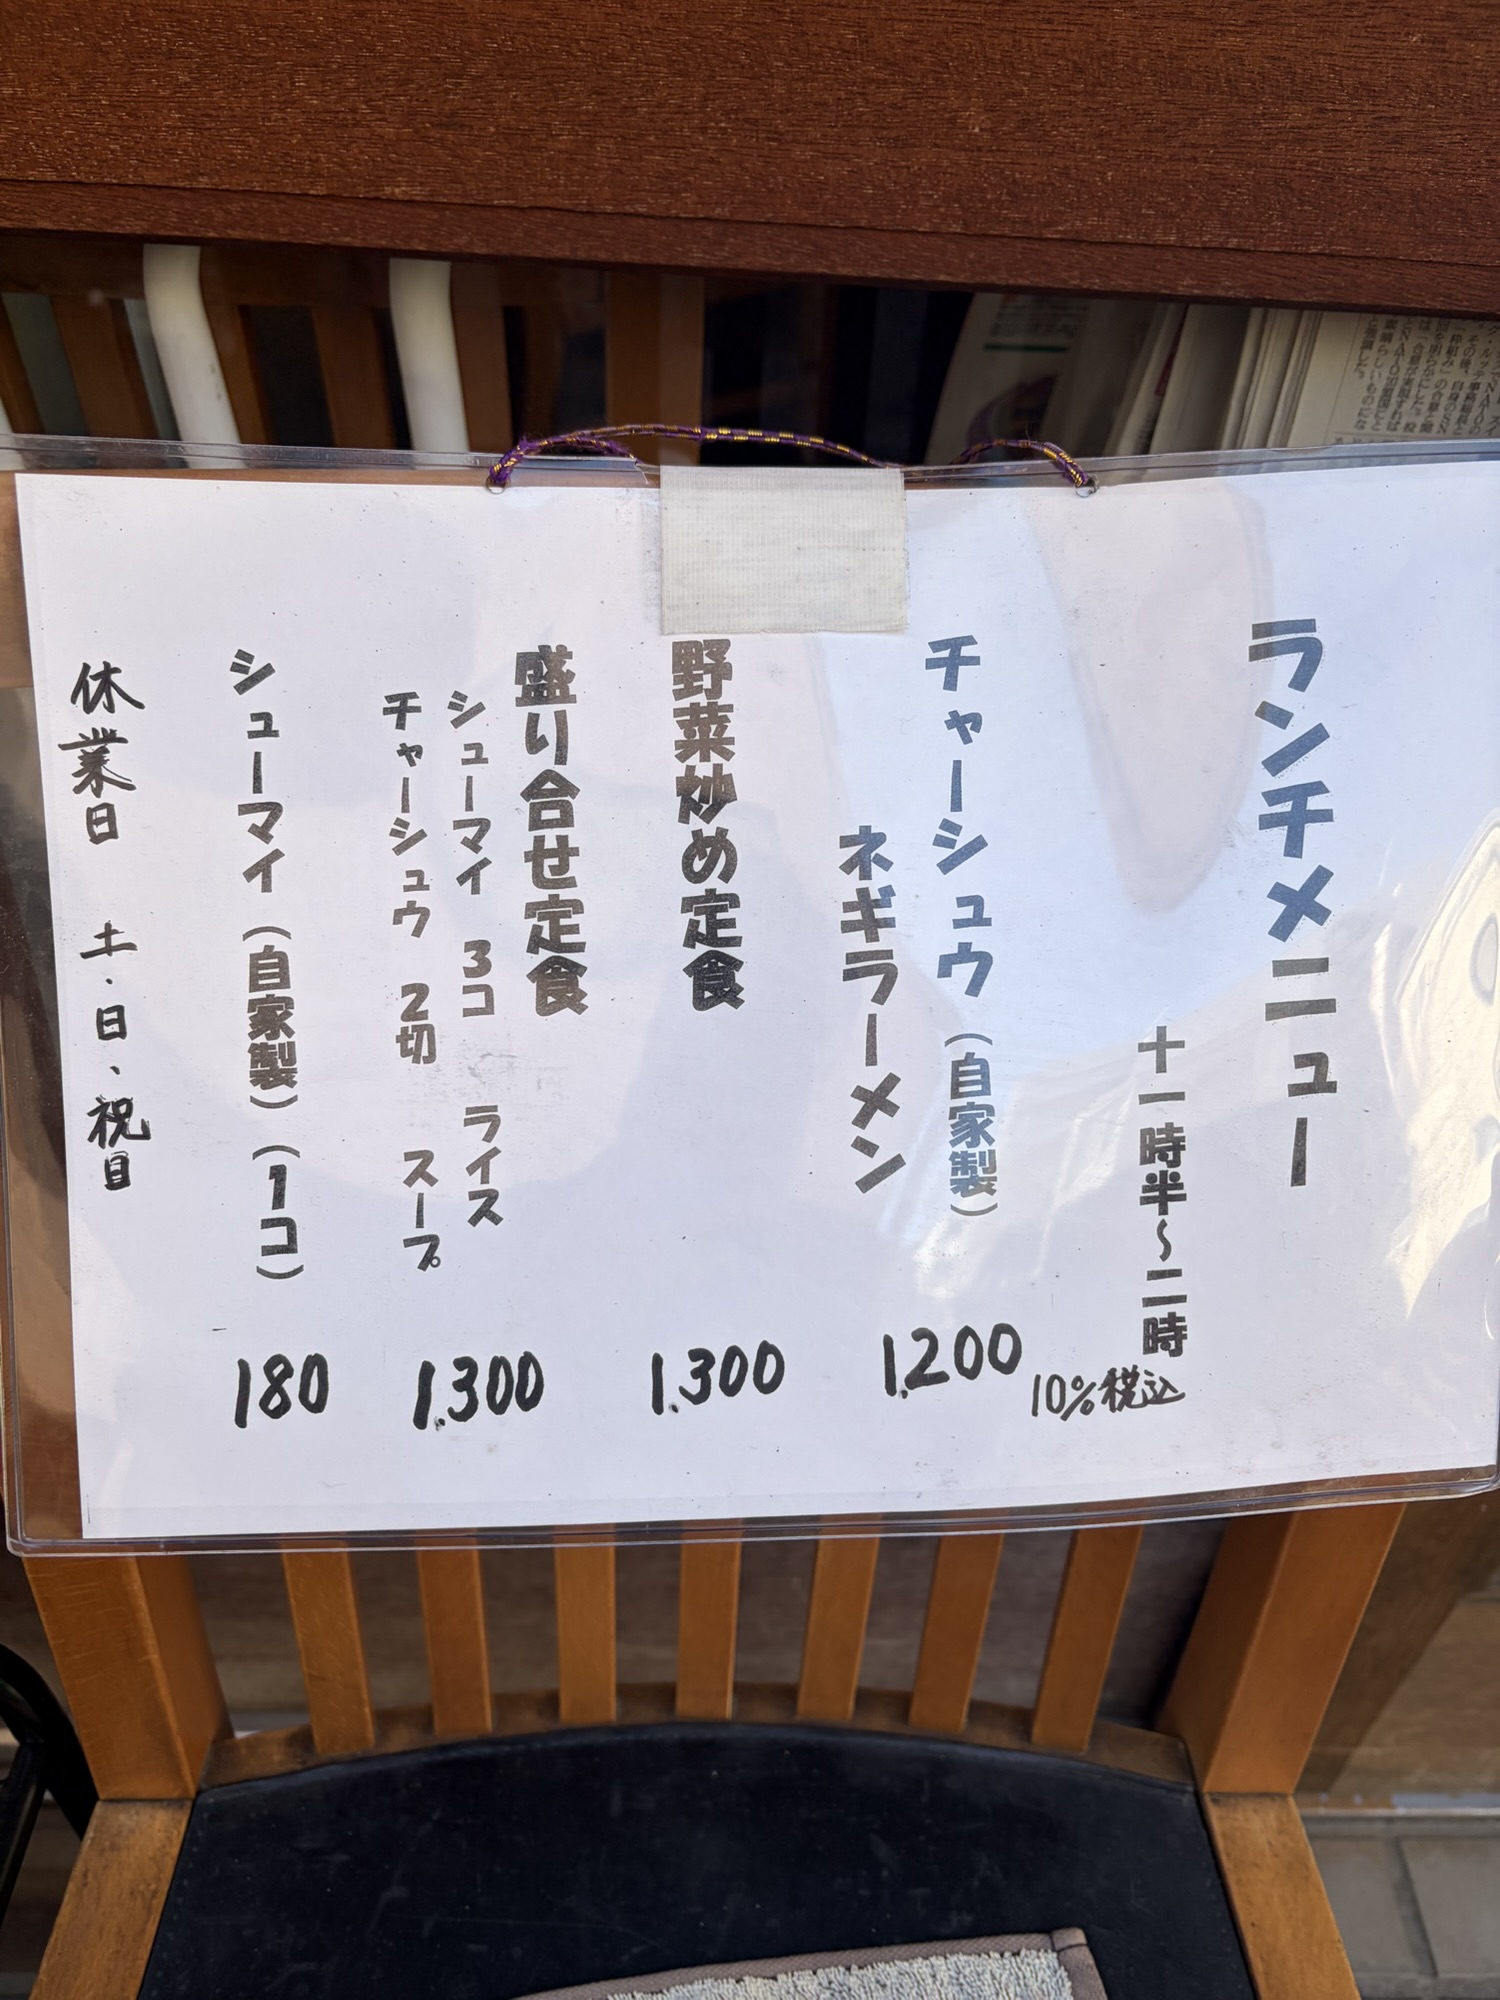 ランチメニュー
十一時半〜二時
10%税込
チャーシュウ（自家製）
ネギラーメン
1.200
野菜炒め定食
1.300
盛り合せ定食
シューマイ 3コ ライス
チャーシュウ 2切 スープ
1.300
シューマイ（自家製）（1コ）
180
休業日 土・日、祝日